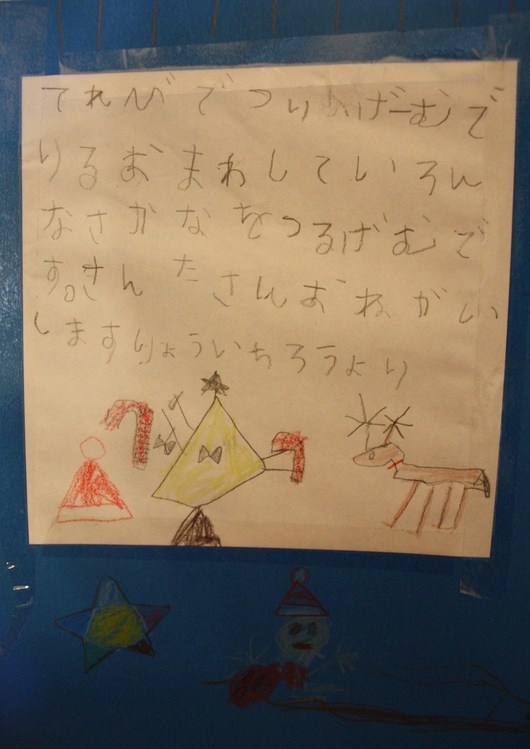 てれびでつりげーむで
りるおまわしていろん
なさかなをつるげむで
す。さんたさんおねがい
しますりょういちろうより